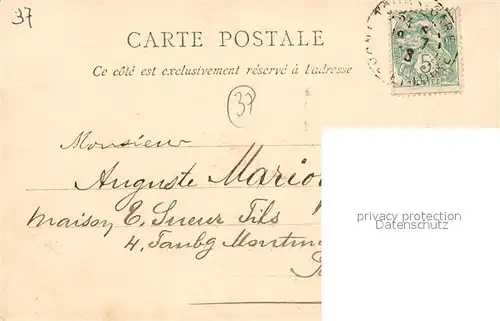 37
CARTE POSTALE
Ce côté est exclusivement réservé à l'adresse
37
Monsieur
Auguste Mario
Maison E. Sueur Fils
4, Faubg Montm
5
privacy protection
Datenschutz